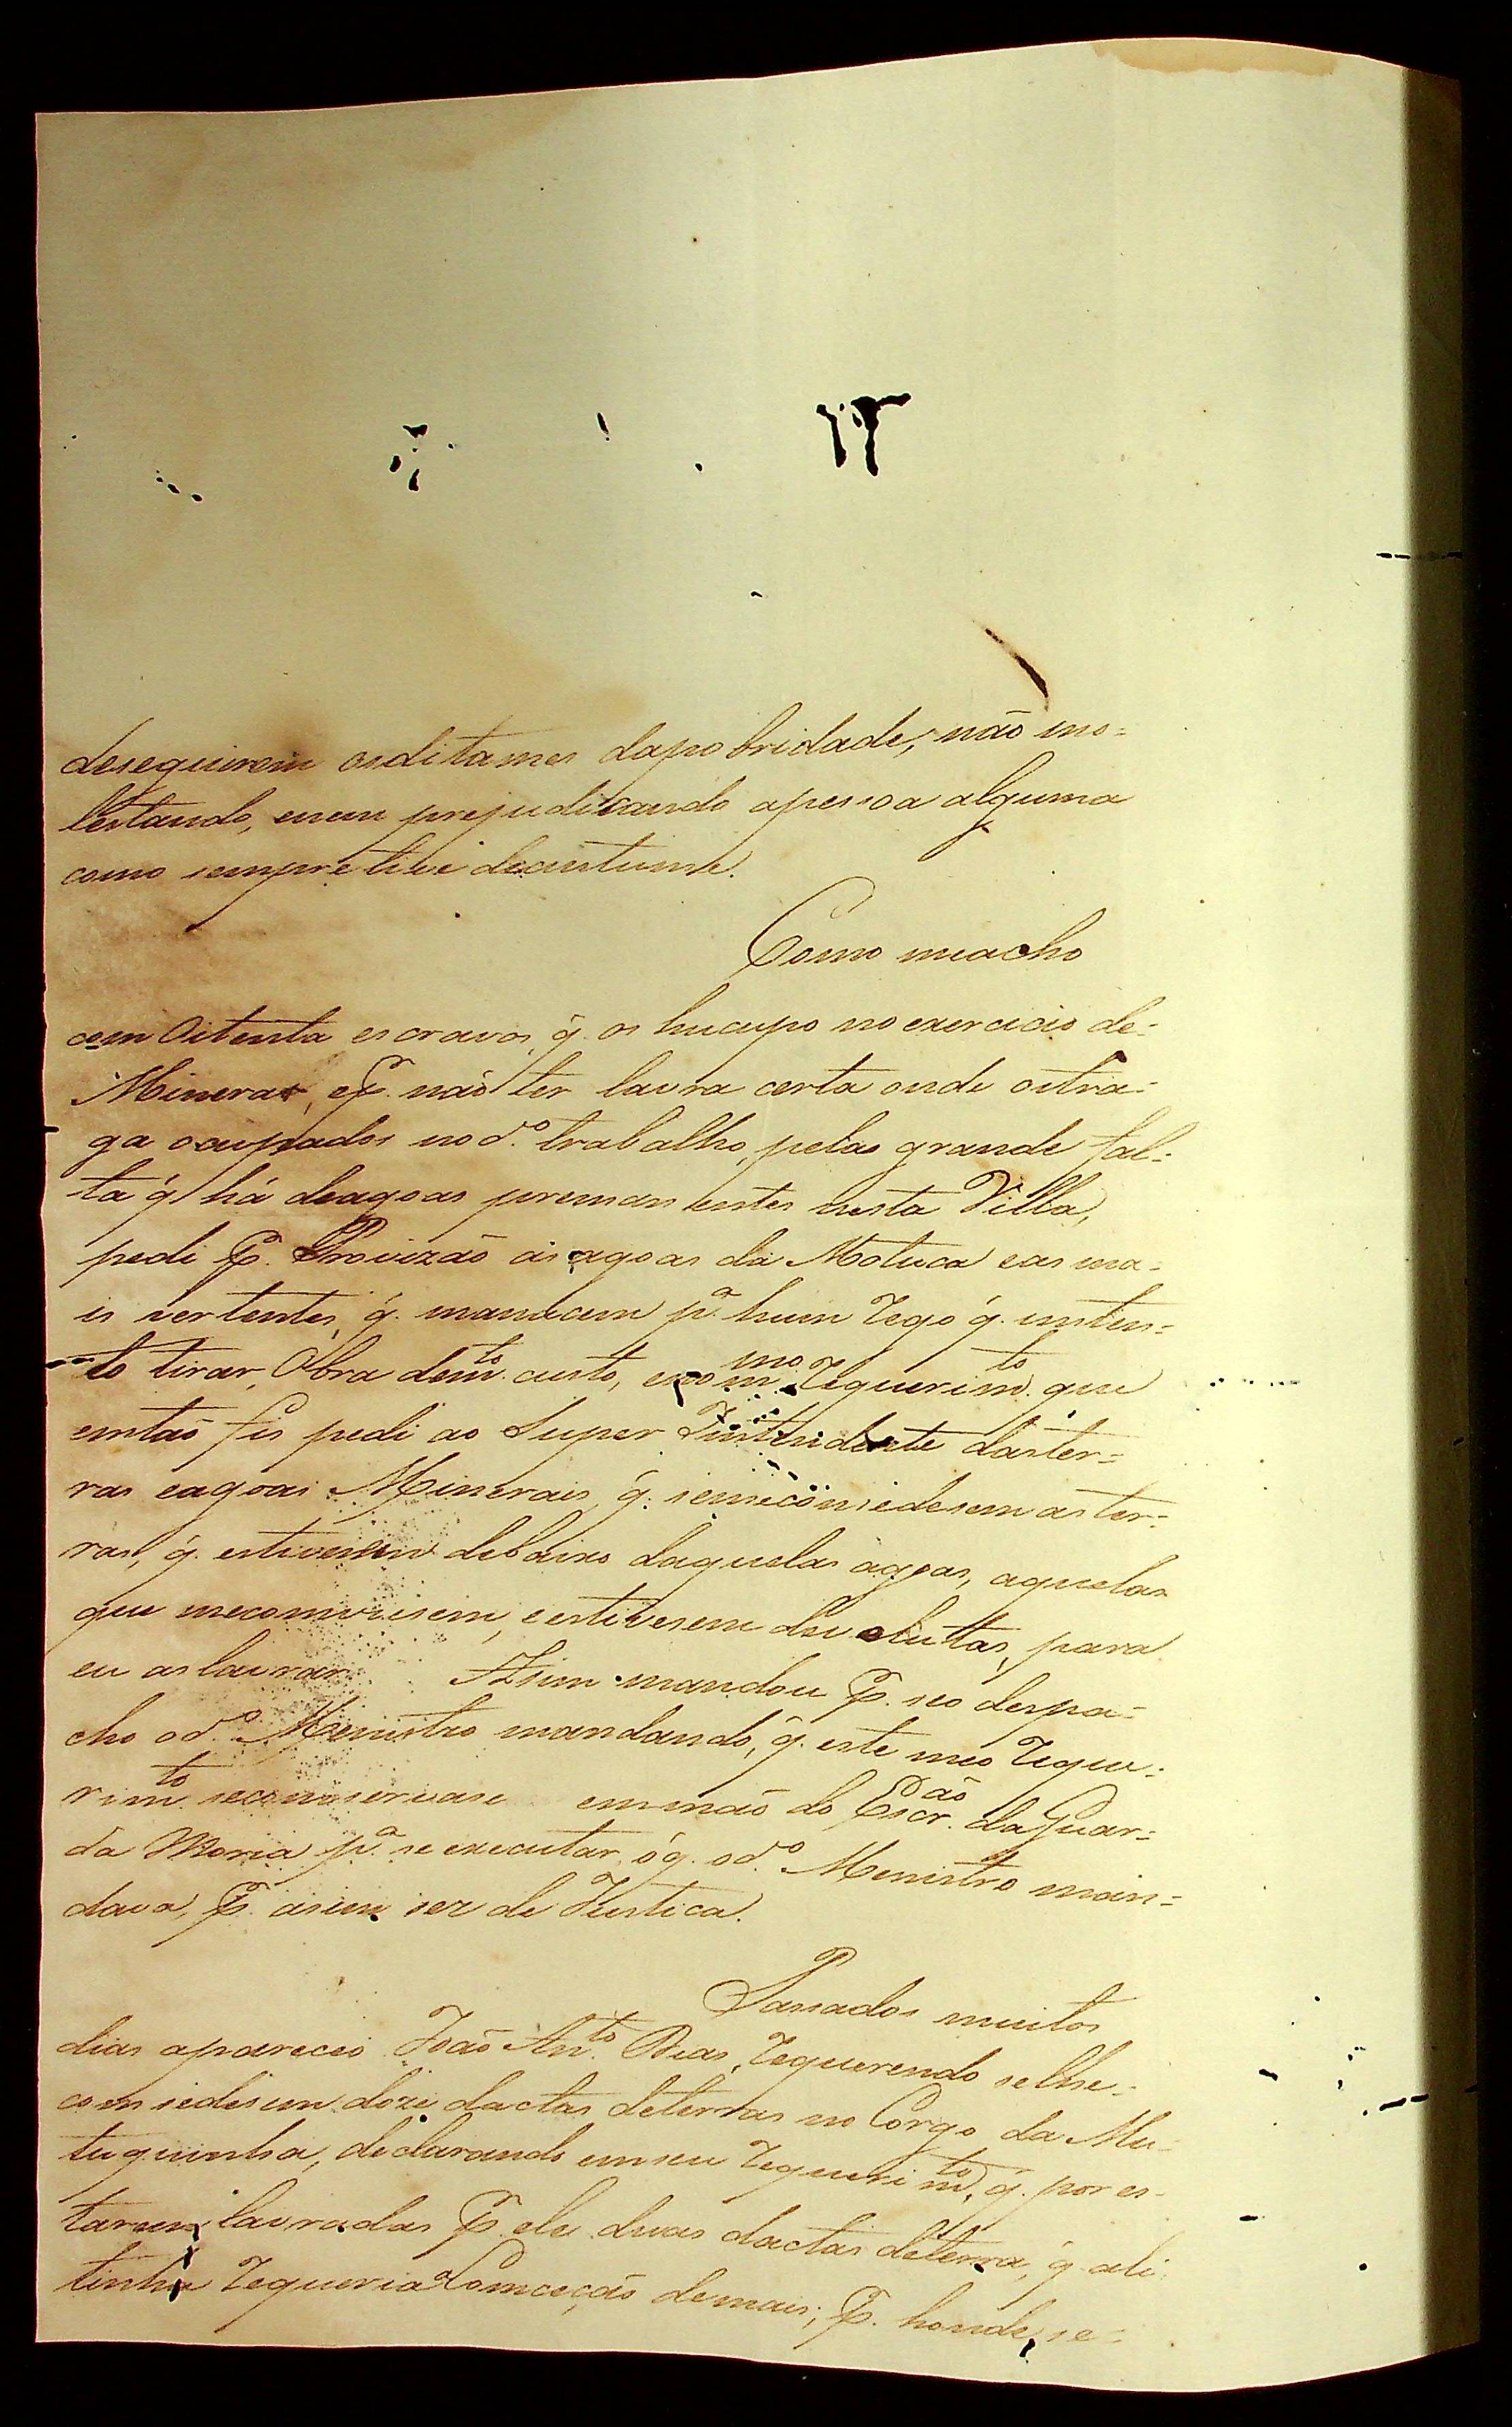 deseguirem osditames daprobridade, não mo=
lestando, enem prejudicando apessoa alguma
como sempre tive decustume.
Como meacho
com Oitenta escravos, q̃. os hucupo no exercicio de=
Minerar, eP. não ter lavra certa onde ostra=
ga ocupados no d.º trabalho, pelas grande fal=
ta q̃ há deagoas premanentes nesta Villa,
pedi P. Provizão as agoas da Motuca eas ma=
is vertentes, q̃. manacem p.ª hum Rego q̃. inten=
to tirar, Obra dem.to custo, eno m.mo Requerim.to que
emtaõ fis pedi ao Super Intendente daster=
ras eagoas Minerais, q̃. semeconsedesem as ter=
ras, q̃. estivesem debaixo daquelas agoas, aquelas
que meconviesem, eestivesem devolutas, para
eu as lavrar. Asim mandou P. seo despa=
cho od.º Menistro mandando, q̃. este meo Reque=
rim.to seconservase emmão do Escr.ão da Guar=
da Moria p.ª se executar, ó q̃. od.º Menistro man=
dava, P. asim ser de Justica.
Pasados muitos
dias apareceo João Ant.to Dias, Requerendo selhe=
consedesem doze dactas deterras no Corgo da Mu=
tuquinha, declarando emseu Requerim.to, q̃. por es=
tarem lavradas P. ele duas dactas deterra, q̃ ali
tinha Requeria Comceção demais; P. honde se=